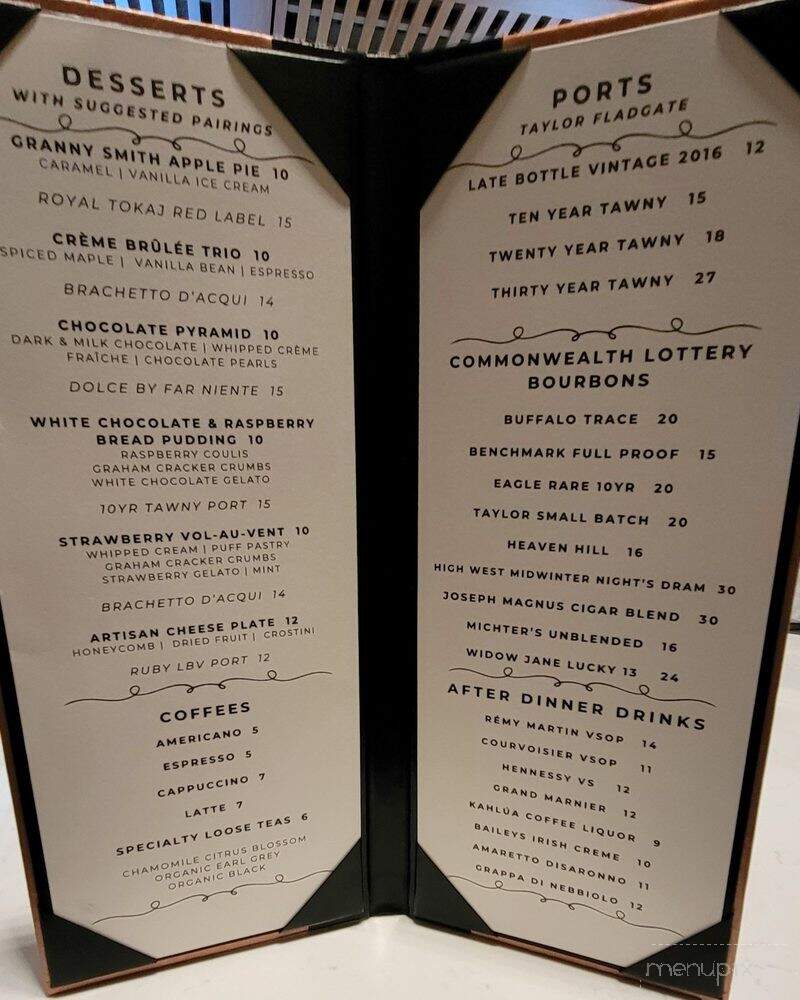 DESSERTS
WITH SUGGESTED PAIRINGS
GRANNY SMITH APPLE PIE 10
CARAMEL | VANILLA ICE CREAM
ROYAL TOKAJ RED LABEL 15
CRÈME BRÛLÉE TRIO 10
SPICED MAPLE | VANILLA BEAN | ESPRESSO
BRACHETTO D'ACQUI 14
CHOCOLATE PYRAMID 10
DARK & MILK CHOCOLATE | WHIPPED CRÈME
FRAÎCHE | CHOCOLATE PEARLS
DOLCE BY FAR NIENTE 15
WHITE CHOCOLATE & RASPBERRY
BREAD PUDDING 10
RASPBERRY COULIS
GRAHAM CRACKER CRUMBS
WHITE CHOCOLATE GELATO
10YR TAWNY PORT 15
STRAWBERRY VOL-AU-VENT 10
WHIPPED CREAM | PUFF PASTRY
GRAHAM CRACKER CRUMBS
STRAWBERRY GELATO | MINT
BRACHETTO D'ACQUI 14
ARTISAN CHEESE PLATE 12
HONEYCOMB | DRIED FRUIT | CROSTINI
RUBY LBV PORT 12
COFFEES
AMERICANO 5
ESPRESSO 5
CAPPUCCINO 7
LATTE 7
SPECIALTY LOOSE TEAS 6
CHAMOMILE CITRUS BLOSSOM
ORGANIC EARL GREY
ORGANIC BLACK
PORTS
TAYLOR FLADGATE
LATE BOTTLE VINTAGE 2016 12
TEN YEAR TAWNY 15
TWENTY YEAR TAWNY 18
THIRTY YEAR TAWNY 27
COMMONWEALTH LOTTERY
BOURBONS
BUFFALO TRACE 20
BENCHMARK FULL PROOF 15
EAGLE RARE 10YR 20
TAYLOR SMALL BATCH 20
HEAVEN HILL 16
HIGH WEST MIDWINTER NIGHT'S DRAM 30
JOSEPH MAGNUS CIGAR BLEND 30
MICHTER'S UNBLENDED 16
WIDOW JANE LUCKY 13 24
AFTER DINNER DRINKS
RÉMY MARTIN VSOP 14
COURVOISIER VSOP 11
HENNESSY VS 12
GRAND MARNIER 12
KAHLÚA COFFEE LIQUOR 9
BAILEYS IRISH CREME 10
AMARETTO DISARONNO 11
GRAPPA DI NEBBIOLO 12
menupix